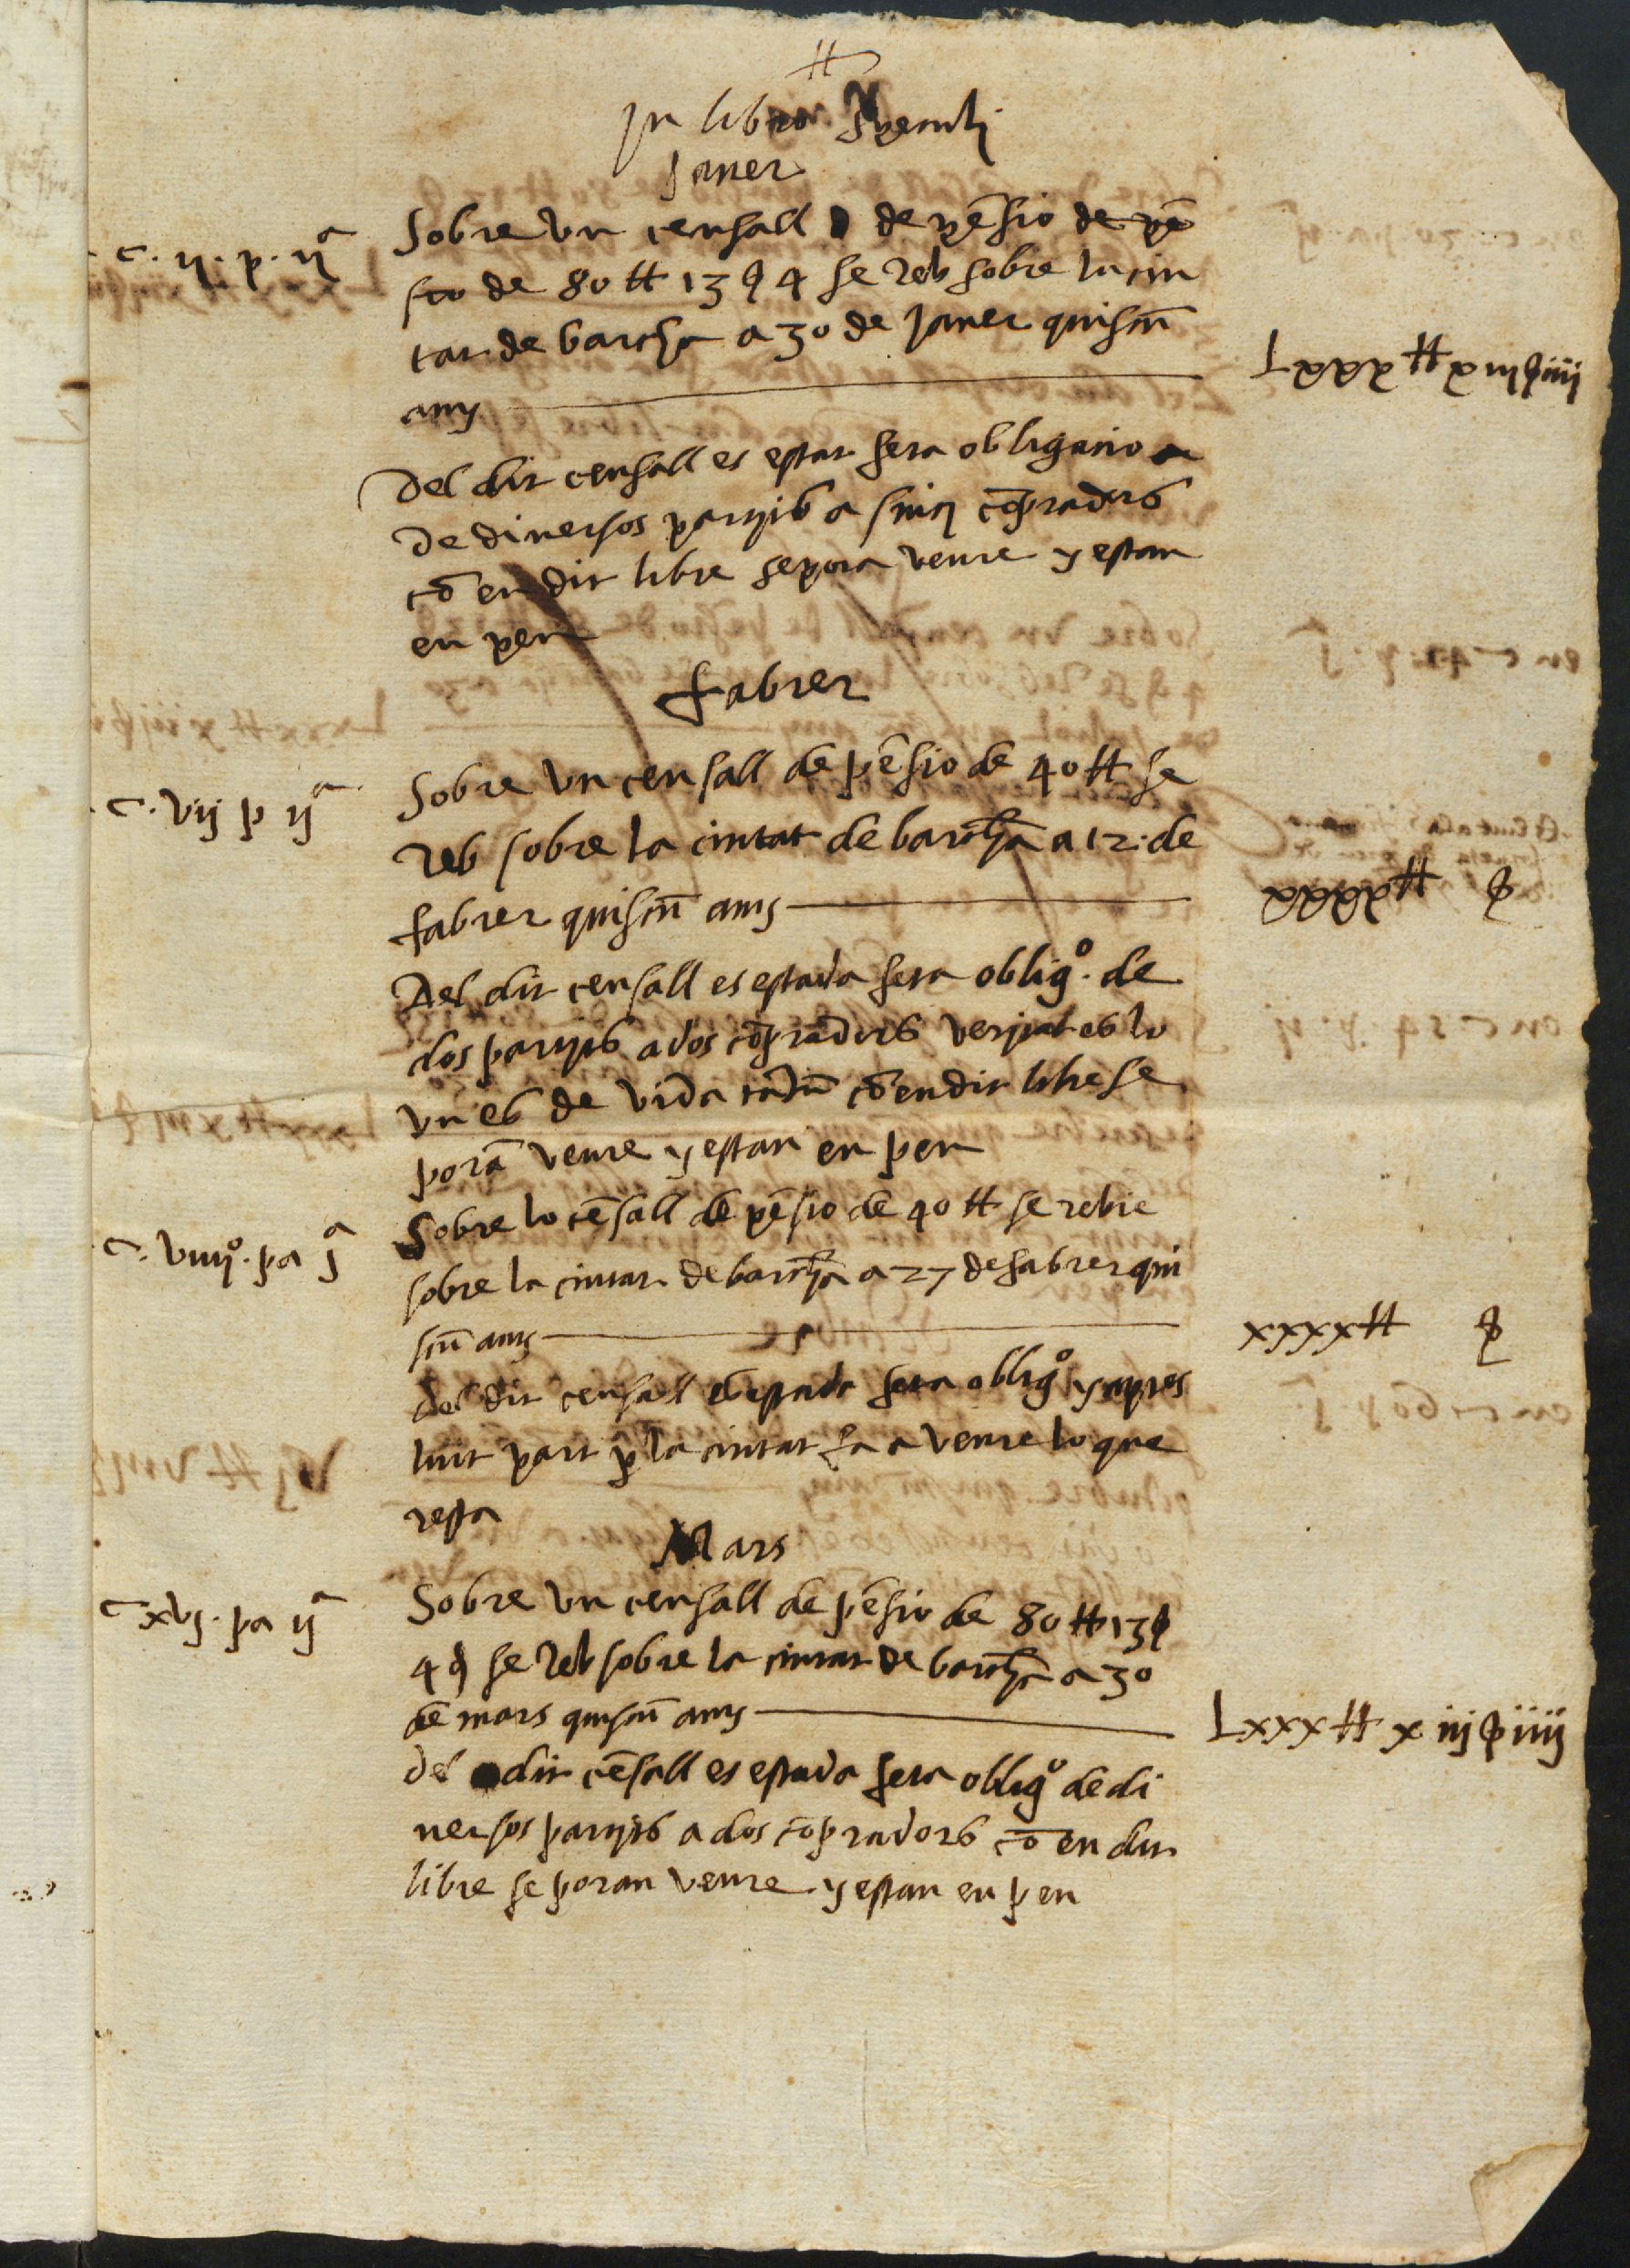 In libro
Janer
c. ij. p. ijª Sobre un censall de pēsio de pē
sio de 80 ℔ 13 ẜ 4 se reb sobre la ciu
tat de barchª a 30 de Janer quiscū
any Lxxx ℔ xiij ẜ iiij
Del dit censall es estat feta obligacio
de diversos partits a sinch cōpradors
cō en dit libre se pora veure y estan
en peu
Fabrer
c. vij p ijª Sobre un censall de pēsio de 40 ℔ se
reb sobre la ciutat de barchª a 12 de
fabrer quiscū any xxxx ℔ ẜ
Del dit censall es estada feta obligº. de
dos partits a dos cōpradors veritat es lo
un es de vida tantū cō en dit libre se
porā veure y estan en peu
c. viiijº. pa jª Sobre lo cēsall de pēsio de 40 ℔ se rebie
sobre la ciutat de barchª a 27 de fabrer qui
scū any xxxx ℔ ẜ
del dit censall es estada feta obligº y apres
luit part p la ciutat fa a veure lo que
resta
Mars
c xvj. pa ijª Sobre un censall de pēsio de 80 ℔ 13 ẜ
4 d se reb sobre la ciutat de barchª a 30
de mars quiscū any Lxxx ℔ xiij ẜ iiij
del dit cēsall es estada feta obligº de di
versos partits a dos cōpradors cō en dit
libre se poran veure y estan en peu